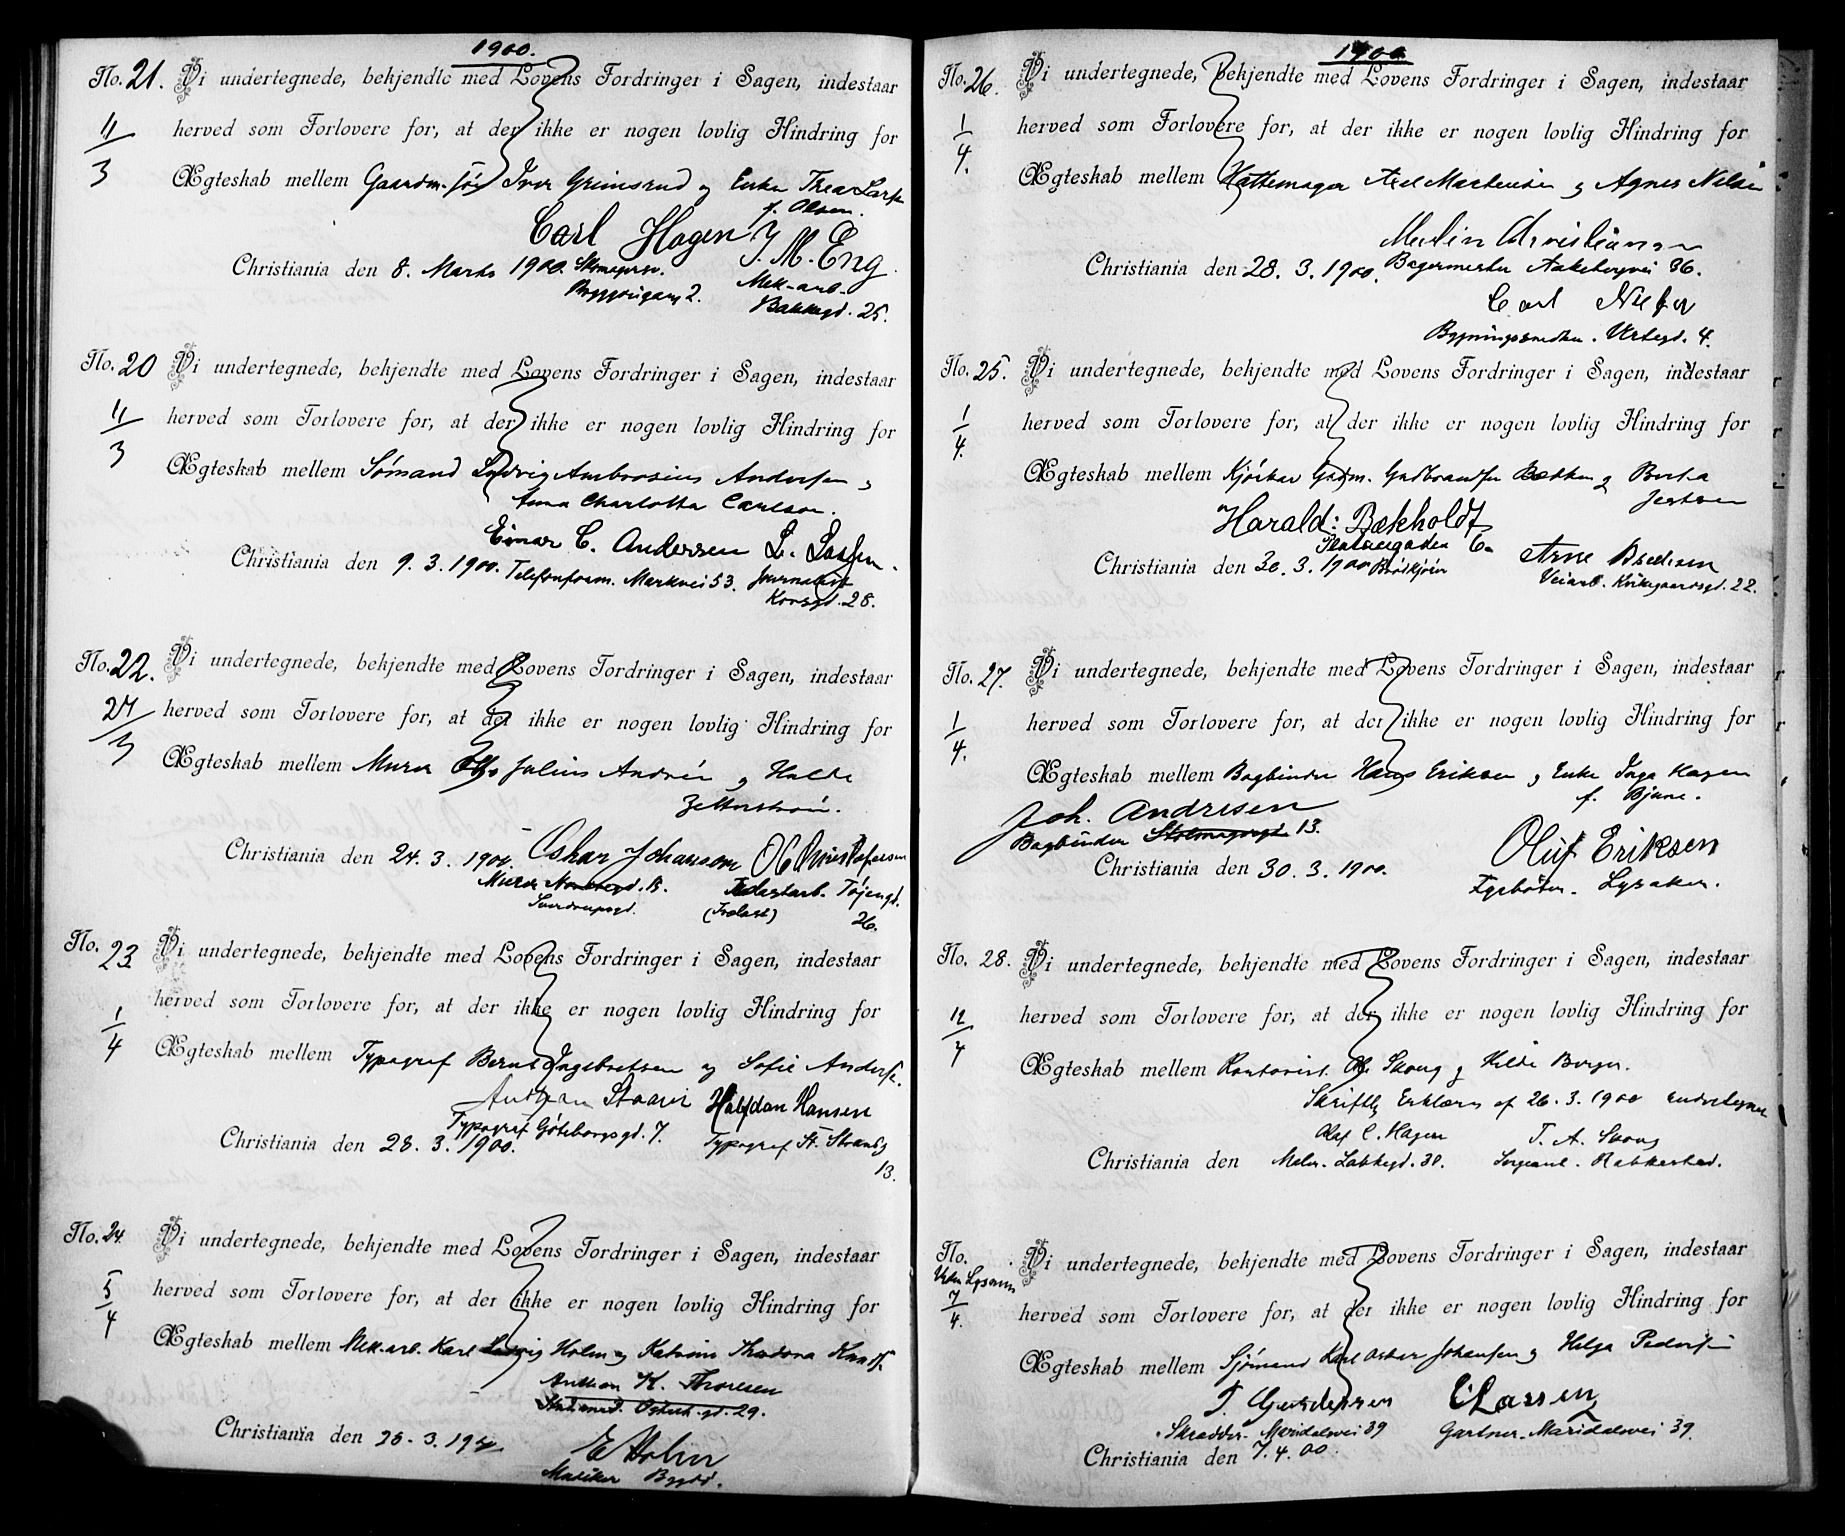 1900.
No. 21. Vi undertegnede, bekjendte med Lovens Fordringer i Sagen, indestaar
11/3 herved som Forlovere for, at der ikke er nogen lovlig Hindring for
Ægteskab mellem Gaardm. Iver Grimsrud og Enke Thea Larsen
f. Olsen.
Carl Hagen J. M. Eng.
Christiania den 8. Marts 1900. Skomagersv. Mek-arb.
2. Bakkegd. 25.
No. 20 Vi undertegnede, bekjendte med Lovens Fordringer i Sagen, indestaar
11/3 herved som Forlovere for, at der ikke er nogen lovlig Hindring for
Ægteskab mellem Sømand Ludvig Ambrosius Andersen &
Anna Charlotta Carlson.
Einar C. Andersen L. Larsen.
Christiania den 9. 3. 1900. Telefonform. Markvei 53. Journalist
Korsgd. 28.
No. 22. Vi undertegnede, bekjendte med Lovens Fordringer i Sagen, indestaar
24/3 herved som Forlovere for, at der ikke er nogen lovlig Hindring for
Ægteskab mellem Murer Otto Julius Andrén og Hulda
Zetterström.
Christiania den 24. 3. 1900. Oskar Johansson O Christofersen
Murer Tøiengd.
26.
No. 23. Vi undertegnede, bekjendte med Lovens Fordringer i Sagen, indestaar
1/4 herved som Forlovere for, at der ikke er nogen lovlig Hindring for
Ægteskab mellem Typograf Bernt Ingebretsen og Sofie Andersen.
Halfdan Hansen
Typograf Göteborgsgd. 7. Typograf St. Strandg
Christiania den 28. 3. 1900.
13.
No. 24. Vi undertegnede, bekjendte med Lovens Fordringer i Sagen, indestaar
5/4 herved som Forlovere for, at der ikke er nogen lovlig Hindring for
Ægteskab mellem Mek. arb. Karl Ludvig Holm og Katrine Theodora
Anthon K. Thoresen
29.
Christiania den 28. 3. 1900.
E Holm
Musiker
1900
No. 26. Vi undertegnede, bekjendte med Lovens Fordringer i Sagen, indestaar
1/4. herved som Forlovere for, at der ikke er nogen lovlig Hindring for
Ægteskab mellem Hattemager Axel Martinsen og Agnes Nilsen
Martin Christiansen
Christiania den 28. 3. 1900. Bagermester Aakebergvei 36.
Carl
Bygningssnedker. Urtegd. 4.
No. 25. Vi undertegnede, bekjendte med Lovens Fordringer i Sagen, indestaar
1/4. herved som Forlovere for, at der ikke er nogen lovlig Hindring for
Ægteskab mellem Kjørkar Gudm. Gudbrandsen Bakken og Berta
Harald Bækholdt
6.
Christiania den 30. 3. 1900 Arne
Veiarb. 22.
No. 27. Vi undertegnede, bekjendte med Lovens Fordringer i Sagen, indestaar
1/4. herved som Forlovere for, at der ikke er nogen lovlig Hindring for
Ægteskab mellem Bogbinder Hans Eriksen og Enke Inga Hagen
f. Bjune.
Joh. Andresen
Bogbinder 13. Oluf Eriksen
Christiania den 30. 3. 1900.
Lysaker.
No. 28. Vi undertegnede, bekjendte med Lovens Fordringer i Sagen, indestaar
12/4 herved som Forlovere for, at der ikke er nogen lovlig Hindring for
Ægteskab mellem Kontorist. Ole Skoug og Hilda Borger.
Skriftlig Erklæring af 26. 3. 1900 undertegnet
Olaf C. Hagen T. A. Skoug
Christiania den Maler. Lakkegd. 30. Sergeant.
No. Vi undertegnede, bekjendte med Lovens Fordringer i Sagen, indestaar
Uden Lysning
7/4. herved som Forlovere for, at der ikke er nogen lovlig Hindring for
Ægteskab mellem Sjømand Karl Oskar Johansen og Helga Pedersen
T. Gundersen C Larsen
Skrædder. Maridalsvei 39 Gartner. Maridalsvei 39.
Christiania den 7. 4. 00.